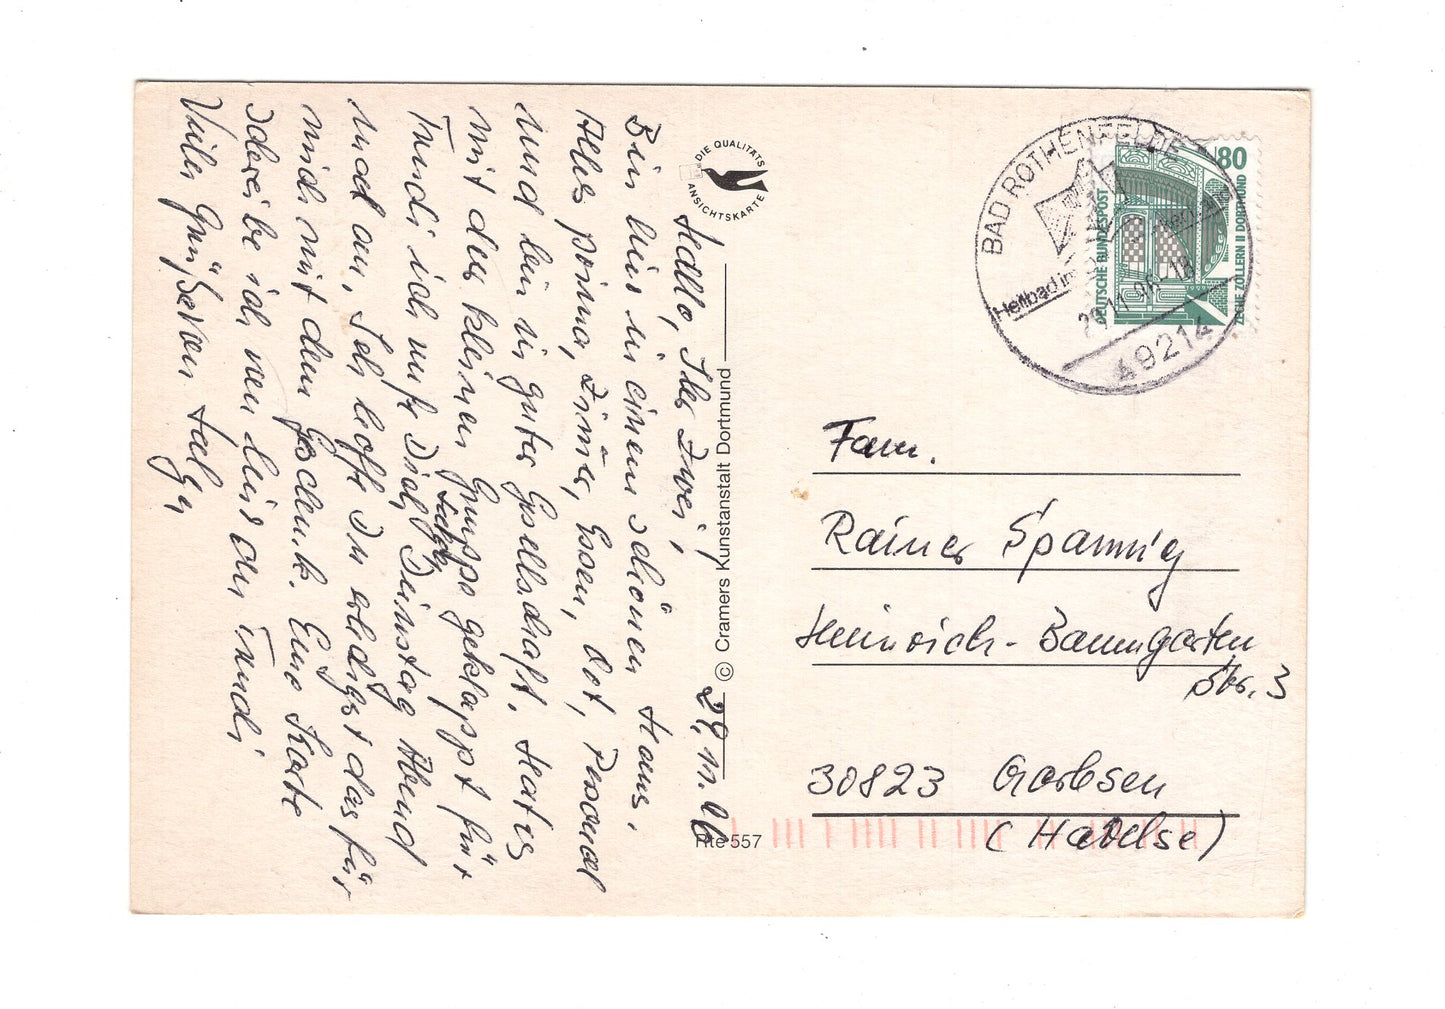 29.11.96
Hallo, Ihr Zwei,
Bin hier in einem schönen Haus.
Alles prima, Zimmer, Essen, Personal
und bin in guter Gesellschaft. Hat es
mit der kleinen Gruppe geklappt für
Trudi ich rufe Dich Dienstag Abend
mal an. Ich hoffe Du erledigst das für
mich mit dem Geschenk. Eine Karte
schreibe ich von hier an Trudi
Viele Grüße von Helga
DIE QUALITÄTS
ANSICHTSKARTE
© Cramers Kunstanstalt Dortmund
Rte 557
BAD ROTHENFELDE
Heilbad im
29.11.96-18
49214
80
DEUTSCHE BUNDESPOST
ZECHE ZOLLERN II DORTMUND
Fam.
Rainer Spannig
Heinrich-Baumgarten
Str. 3
30823 Garbsen
(Havelse)